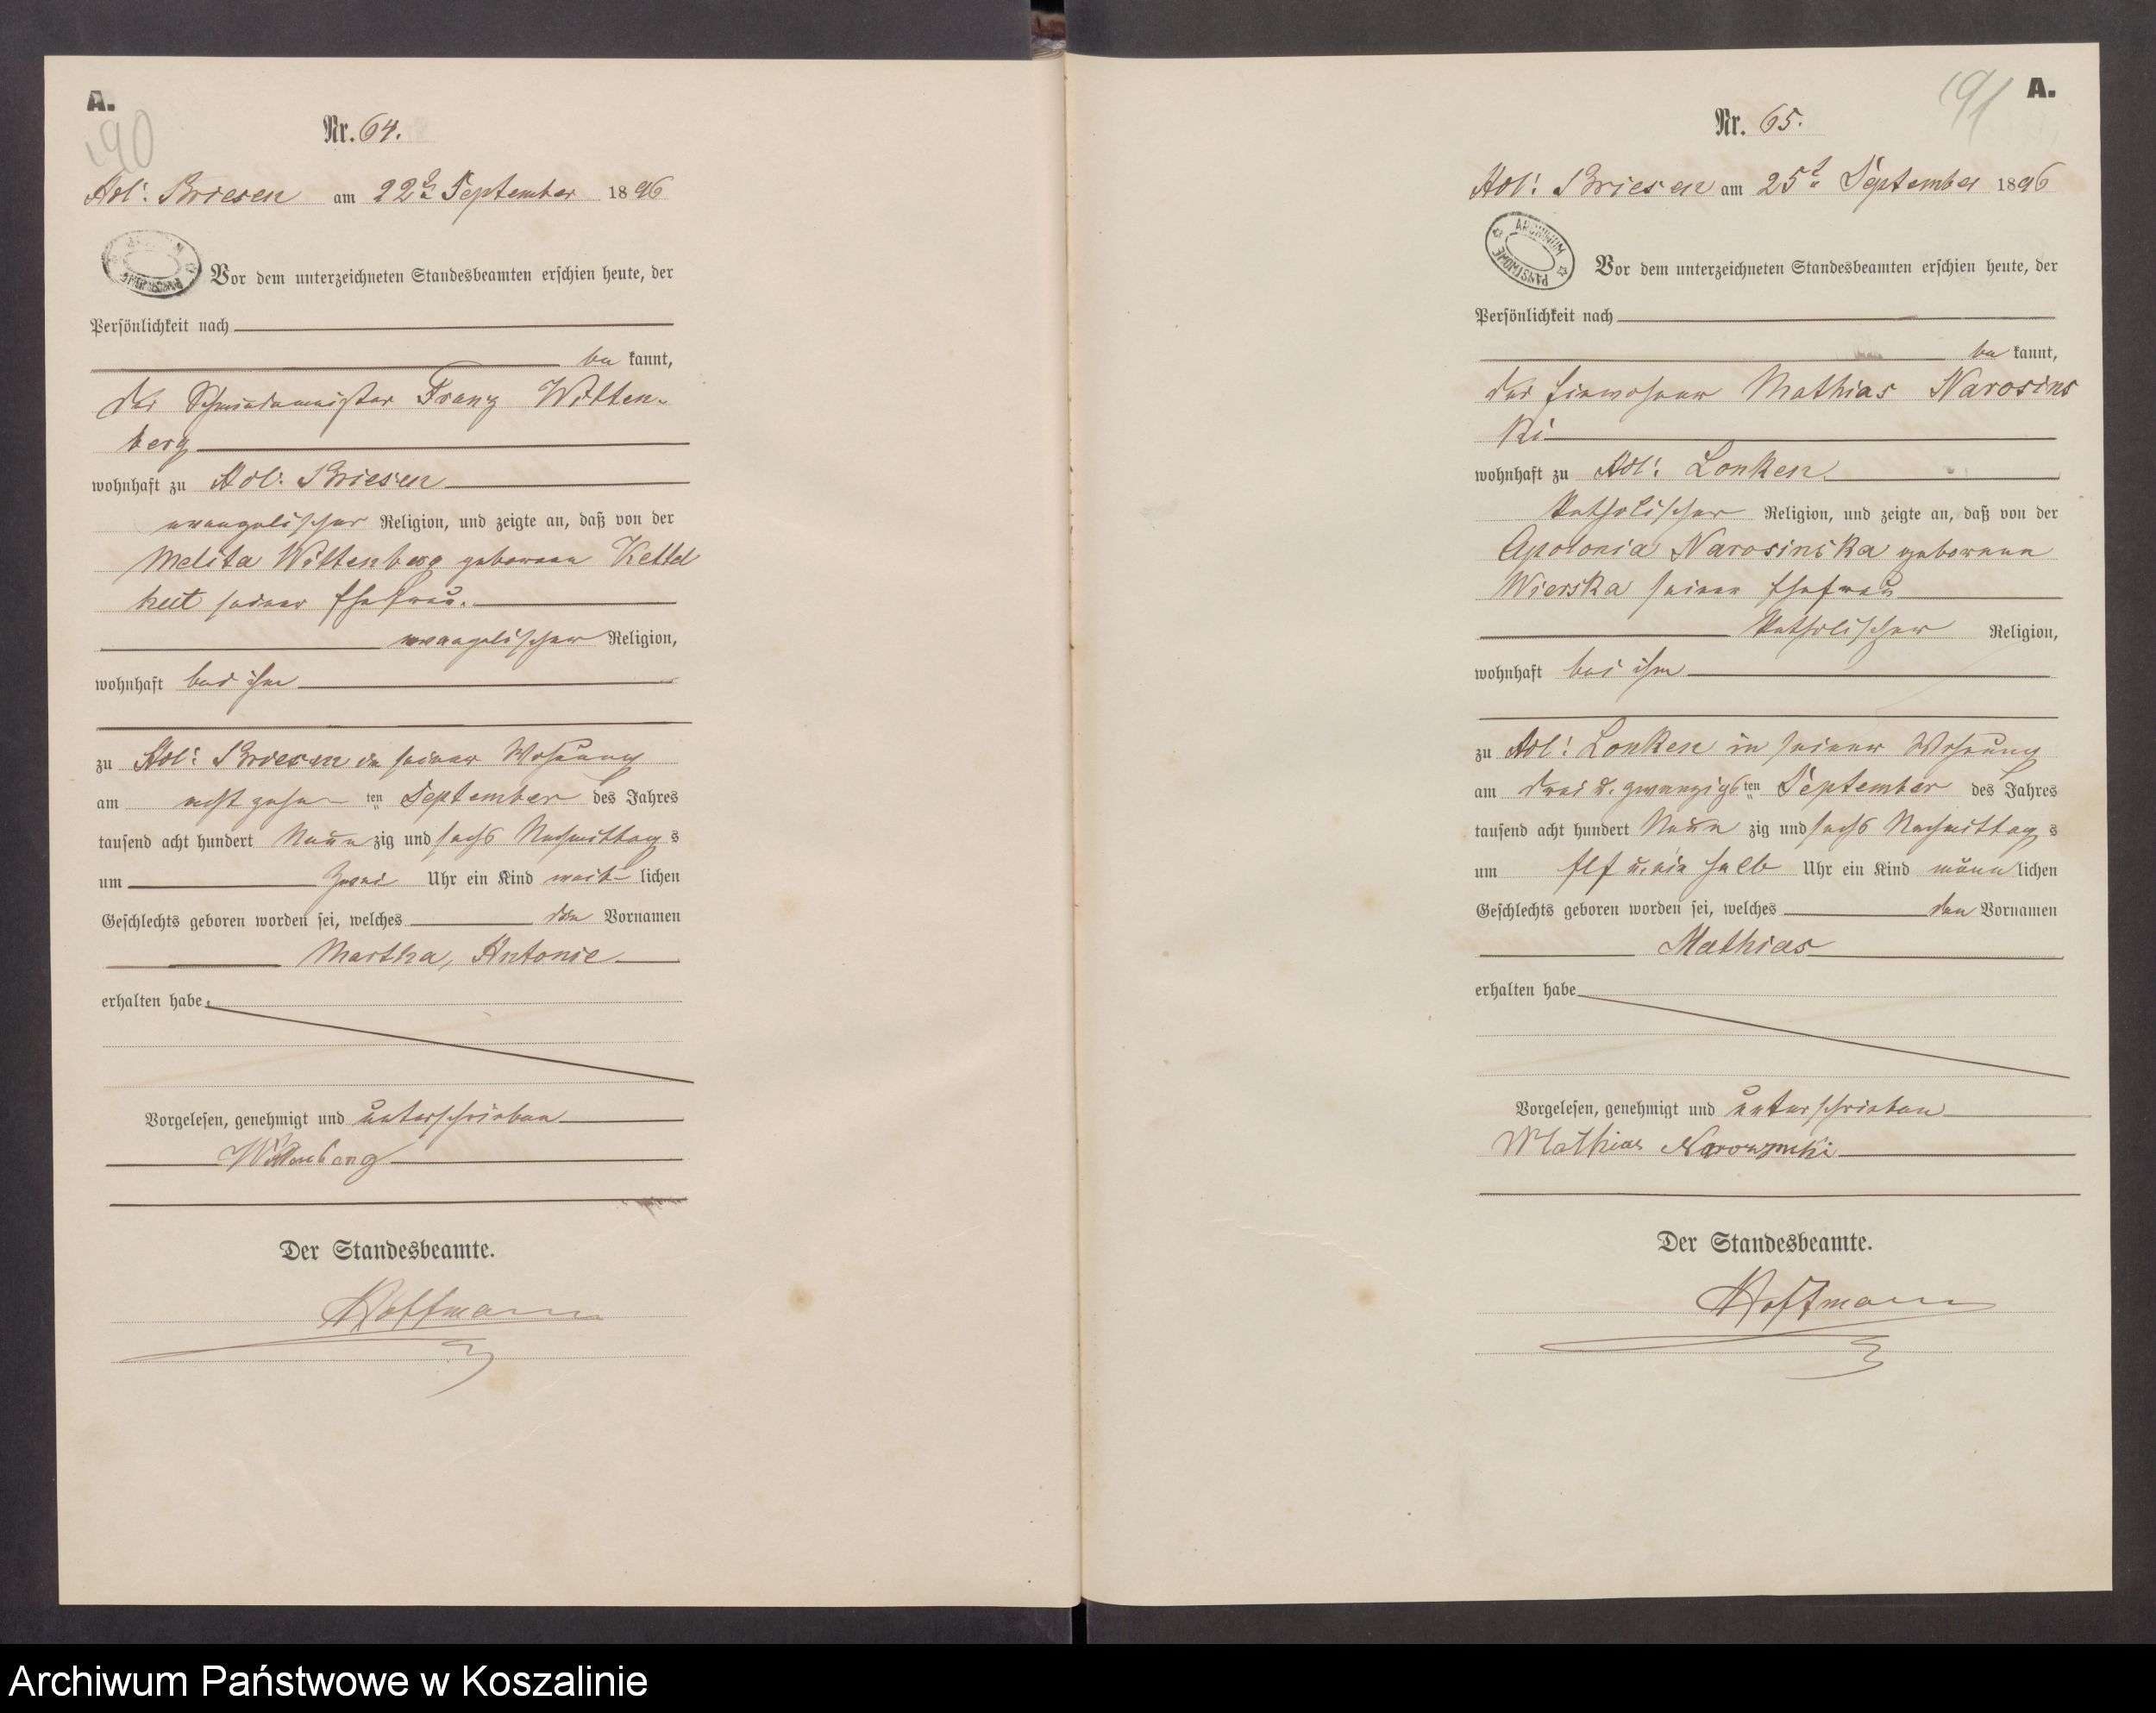 A.
190
Nr. 64.
Adl: Briesen am 22t September 1896
ARCHIWUM PAŃSTWOWE
Vor dem unterzeichneten Standesbeamten erschien heute, der
Persönlichkeit nach
be kannt,
der Schmiedemeister Franz Witten-
berg
wohnhaft zu Adl: Briesen
evangelischer Religion, und zeigte an, daß von der
Melita Wittenberg geborene Kettel
hut seiner Ehefrau.
evangelischer Religion,
wohnhaft bei ihm
zu Adl: Briesen in seiner Wohnung
am achtzehn ten September des Jahres
tausend acht hundert Neun zig und sechs Nachmittag s
um Zwei Uhr ein Kind weib- lichen
Geschlechts geboren worden sei, welches den Vornamen
Martha, Antonie
erhalten habe.
Vorgelesen, genehmigt und unterschrieben
Wittenberg
Der Standesbeamte.
Hoffmann
191
A.
Nr. 65.
Adl: Briesen am 25t September 1896
ARCHIWUM PAŃSTWOWE
Vor dem unterzeichneten Standesbeamten erschien heute, der
Persönlichkeit nach
be kannt,
der Einwohner Mathias Narosins
ki
wohnhaft zu Adl: Lonken
Katholischer Religion, und zeigte an, daß von der
Apolonia Narosinska geborene
Wierska seiner Ehefrau
Katholischer Religion,
wohnhaft bei ihm
zu Adl: Lonken in seiner Wohnung
am drei u. zwanzigs ten September des Jahres
tausend acht hundert Neun zig und sechs Nachmittag s
um Elf u. ein halb Uhr ein Kind männ lichen
Geschlechts geboren worden sei, welches den Vornamen
Mathias
erhalten habe
Vorgelesen, genehmigt und unterschrieben
Mathias
Der Standesbeamte.
Hoffmann
Archiwum Państwowe w Koszalinie